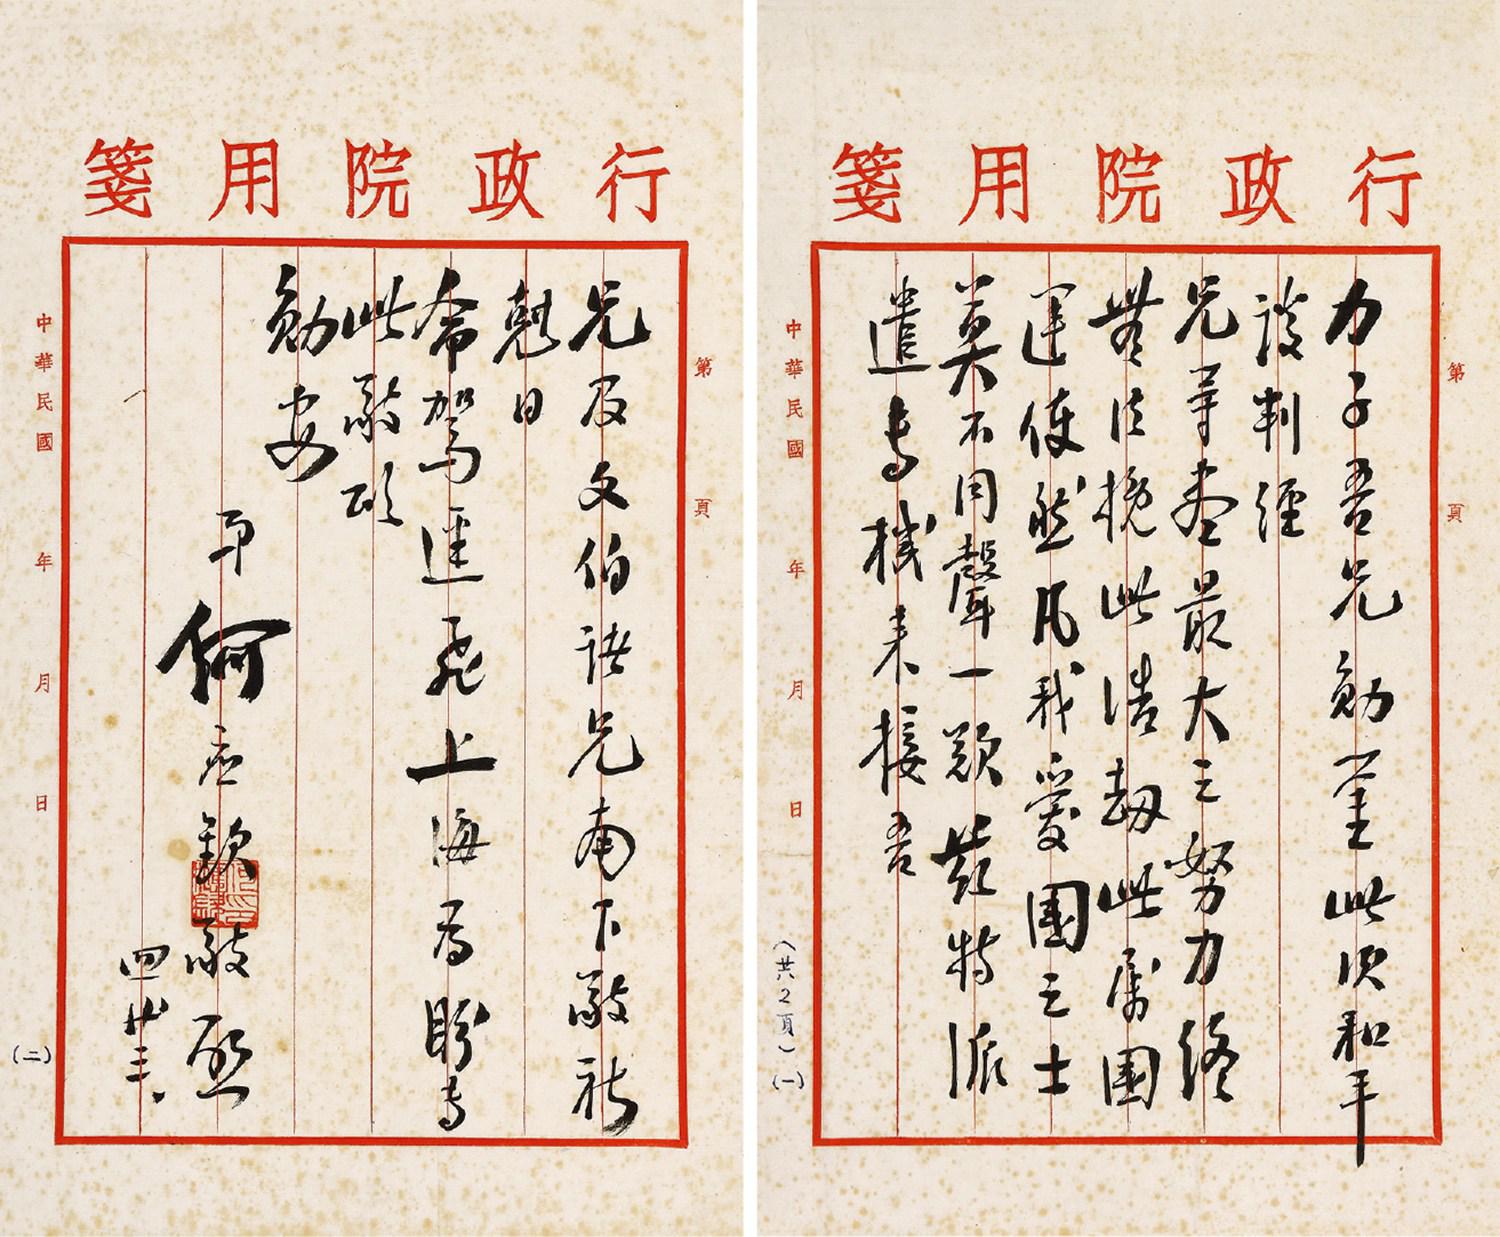 行政院用箋
第 頁
力子吾兄勛鑒此次和平
談判經
兄等盡最大之努力終
無法挽此浩劫此属國
運使然凡我愛國之士
莫不同聲一歎茲特派
遣專機來接吾
中華民國 年 月 日
(共2頁)(一)
行政院用箋
第 頁
兄及文伯諸兄南下敬祈
尅日
命駕逕飛上海為盼專
此敬頌
勛安
弟何應欽敬啟
四廿三、
中華民國 年 月 日
(二)